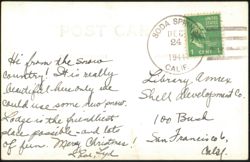 POST CARD
SODA SPRINGS
DEC
24
1941
CALIF.
1 CENT 1
Hi from the snow
country! It is really
beautiful - here only we
could use some new snow.
Lodge is the friendliest
place possible - and lots
of fun. Merry Christmas!
Library, Annex
Shell Development Co.
100 Bush
San Francisco,
Calif.